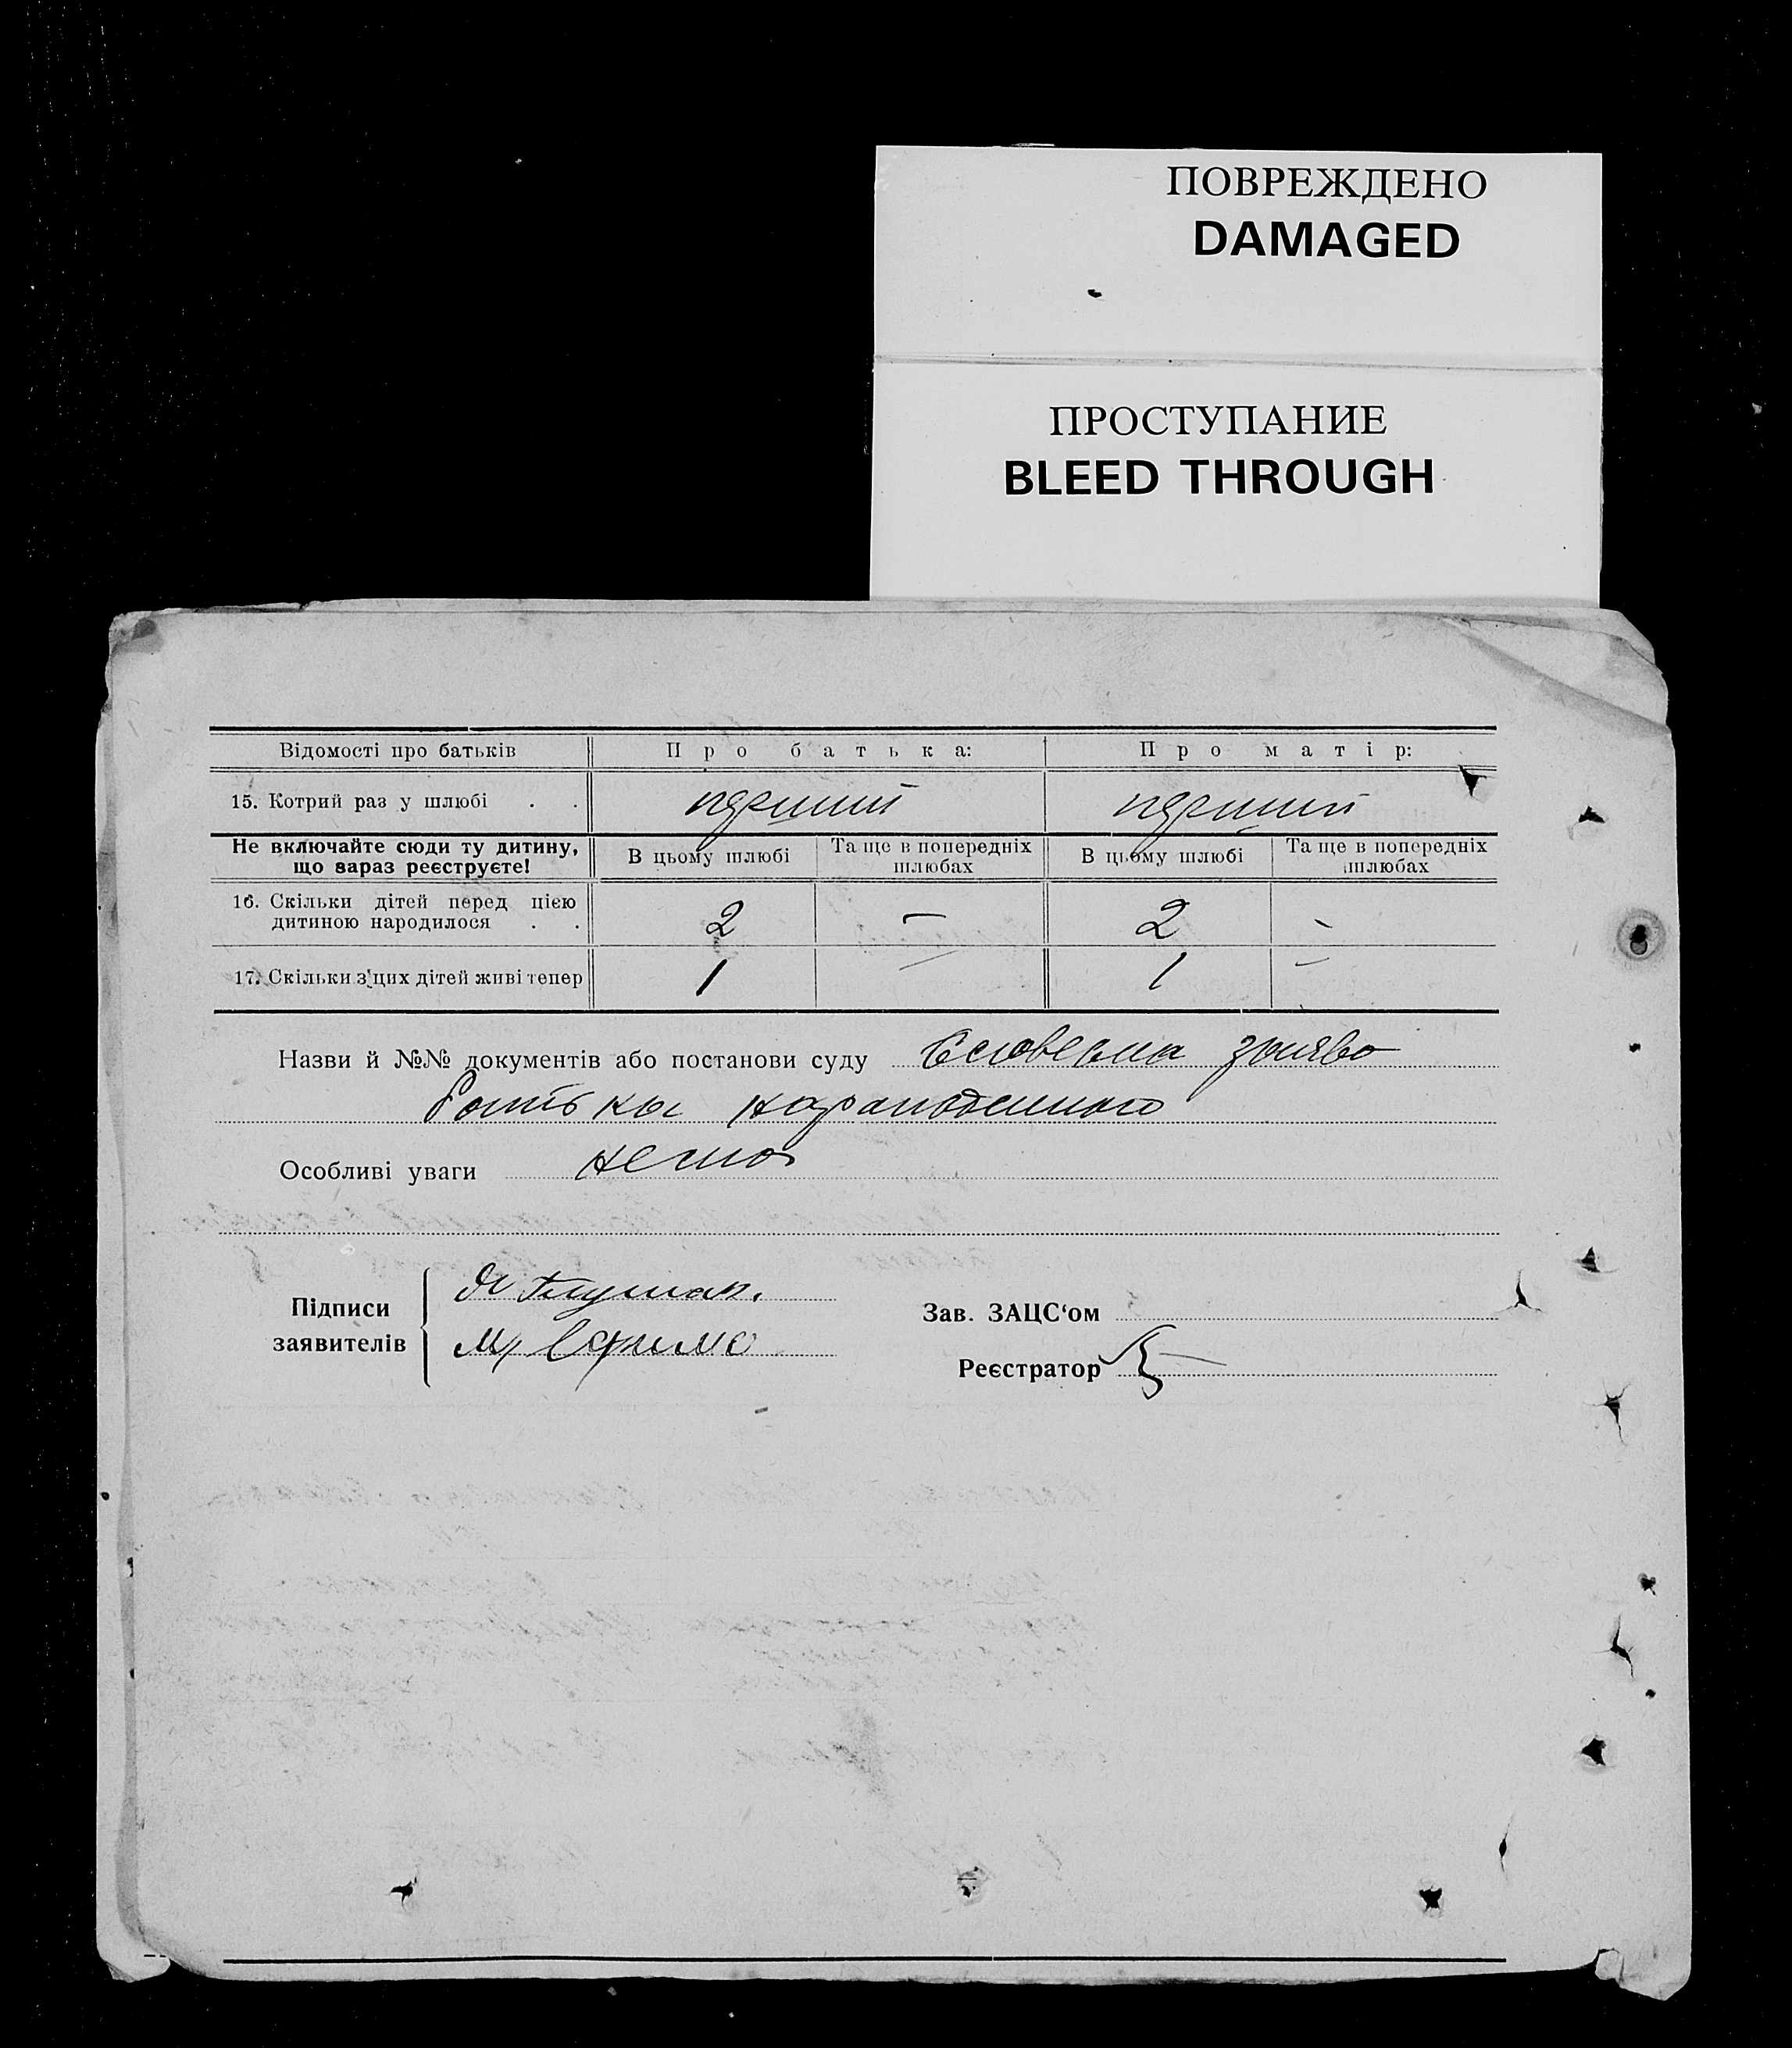 ПОВРЕЖДЕНО
DAMAGED
ПРОСТУПАНИЕ
BLEED THROUGH
Відомості про батьків Про батька: Про матір:
15. Котрий раз у шлюбі . . перший перший
Не включайте сюди ту дитину, що зараз реєструєте! В цьому шлюбі Та ще в попередніх шлюбах В цьому шлюбі Та ще в попередніх шлюбах
16. Скільки дітей перед цією дитиною народилося . . 2 — 2 -
17. Скільки з цих дітей живі тепер 1 — 1 —
Назви й №№ документів або постанови суду Словесна заява
народженого
Особливі уваги нема
Підписи заявителів
Зав. ЗАЦС‘ом
Реєстратор